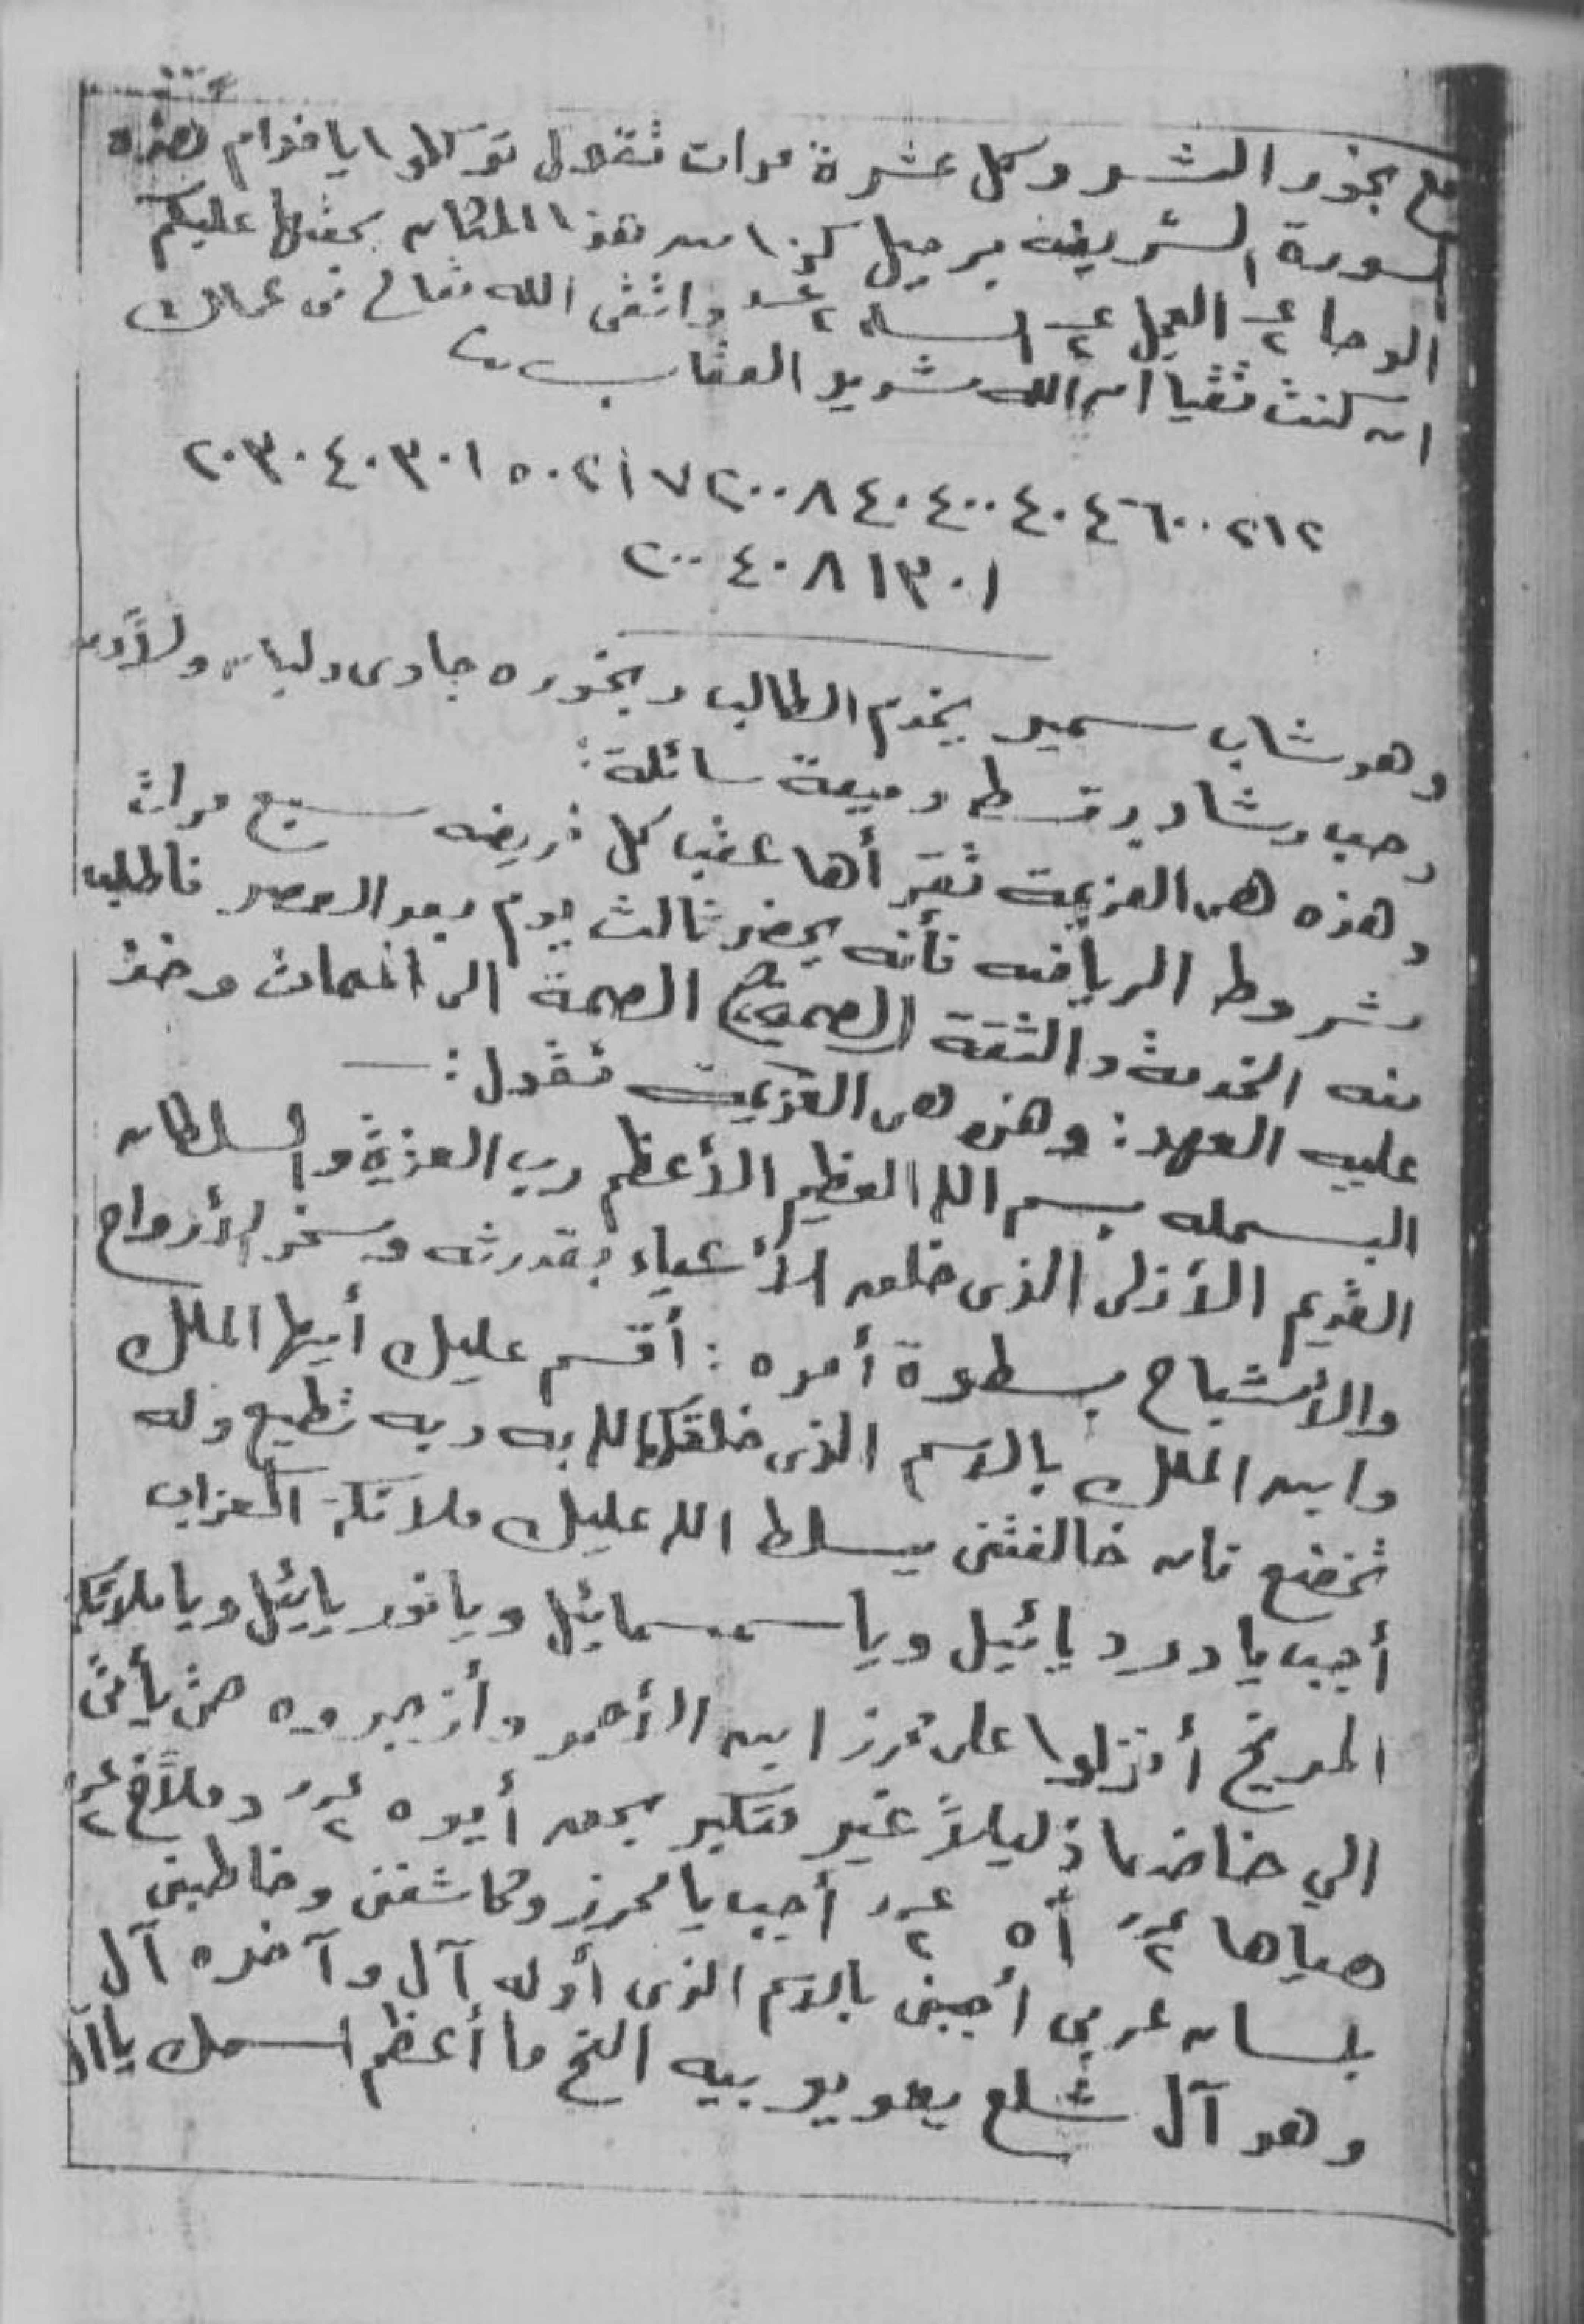 مع بخور الشر وكل عشرة مرات تقول توكلوا يا خدام هذه
السورة الشريفة برحيل كذا من هذا المكان بحقها عليكم
الوحا ٢ العجل ٢ الساعة ٢ واتقى الله تعالى فى عملك
ان كنت تقيا ان الله شديد العقاب
٢١٢ ٦٠٠ ٤ ٤٠ ٤٠٠ ٤٠ ٨ ٢٠٠ ٧ ١ ٢ ٥٠ ١ ٣٠ ٤٠ ٣٠ ٢٠
١ ٣٠ ١ ٨ ٤٠ ٢٠٠
وهو شاب سمير يخدم الطالب وبخوره جاوى ولبان ولادن
وحب رشاد وقسط وميعة سائلة:
وهذه هى العزيمة تقرأها عقب كل فريضه سبع مرات
بشروط الرياضه فأنه يحضر ثالث يوم بعد العصر فاطلب
منه الخدمة والثقة (الصحبة) الصحبة الى الممات وخذ
عليه العهد: وهذه هى العزيمت تقول:—
البسمله بسم الله العظيم الأعظم رب العزة والسلطان
القديم الأزلى الذى خلق الأشياء بقدرته وسخر الأرواح
والأشباح بسطوة أمره: أقسم عليك أيها الملك
وابن الملك بالاسم الذى خلقك الله به وبه تطيع وله
تخضع فان خالفتنى يسلط الله عليك ملائكة العذاب
أجب يا دردیائيل ويا سمسمائيل ويا نوريائيل ويا ملائكة
المريخ أنزلوا على محرز ابن الأحمر وأزجروه حتى يأتى
الي خاضعا ذليلاً غير متكبر بحق أيوه ٢ وملاخ ٢
هياها ٢ أه ٢ أجب يا محرز وكاشفنى وخاطبنى
بلسان عربى أجبنى بالاسم الذى أوله آل وآخره آل
وهو آل شلع يعو يو بيه الخ ما أعظم اسمك يا آل